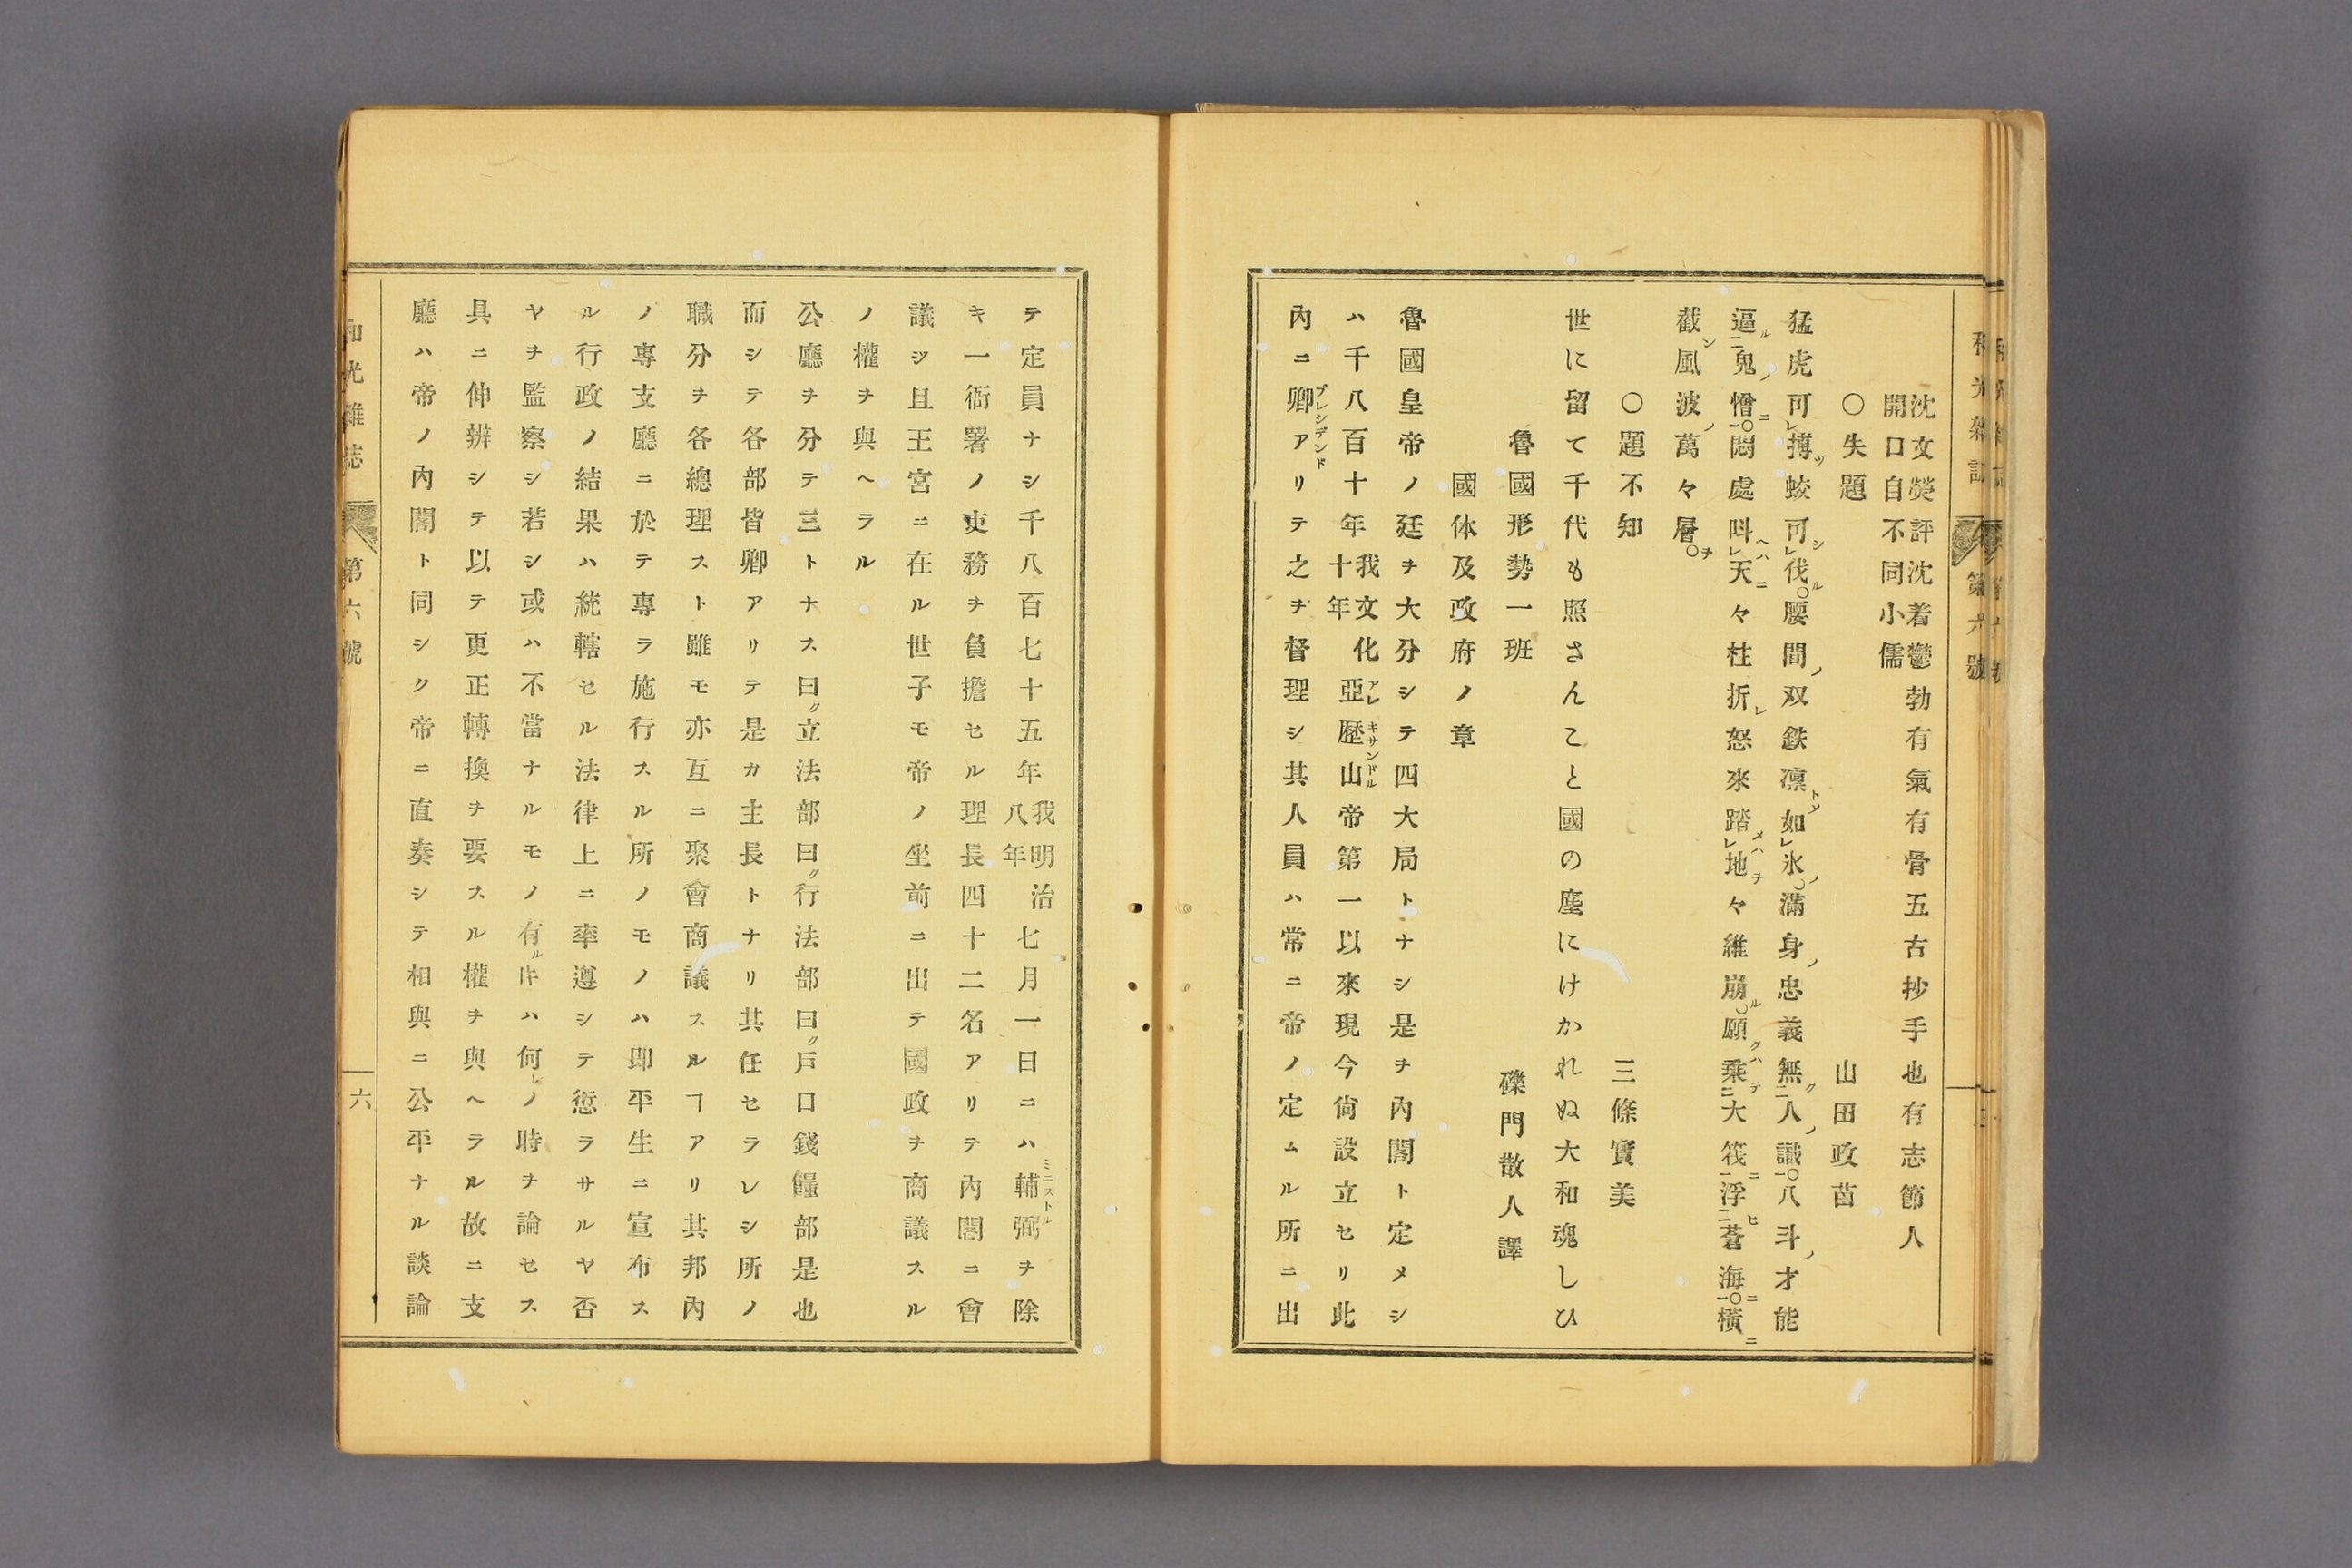 沈文熒評沈着鬱勃有氣有骨五古抄手也有志節人
開口自不同小儒
〇失題
山田政苗
猛虎可摶蛟可伐〇腰間双鉄凛如氷〇滿身忠義無人識〇八斗才能
逼鬼憎〇悶處呌天々柱折怒來踏地々維崩〇願乘大筏浮蒼海〇橫
截風波萬々層〇
〇題不知
三條實美
世に留て千代も照さんこと國の塵にけかれぬ大和魂しひ
魯國形勢一班
礫門散人譯
國体及政府ノ章
魯國皇帝ノ廷ヲ大分シテ四大局トナシ是ヲ內閣ト定メシ
ハ千八百十年我文化十年亞歷山帝第一以來現今尙設立セリ此
內ニ卿アリテ之ヲ督理シ其人員ハ常ニ帝ノ定ムル所ニ出
テ定員ナシ千八百七十五年我明治八年七月一日ニハ輔弼ヲ除
キ一衙署ノ吏務ヲ負擔セル理長四十二名アリテ內閣ニ會
議シ且王宮ニ在ル世子モ帝ノ坐前ニ出テ國政ヲ商議スル
ノ權ヲ與ヘラル
公廳ヲ分テ三トナス曰ク立法部曰ク行法部曰ク戶口錢饂部是也
而シテ各部皆卿アリテ是カ主長トナリ其任セラレシ所ノ
職分ヲ各總理スト雖モ亦互ニ聚會商議スルヿアリ其邦內
ノ專支廳ニ於テ專ラ施行スル所ノモノハ即平生ニ宣布ス
ル行政ノ結果ハ統轄セル法律上ニ率遵シテ愆ラサルヤ否
ヤヲ監察シ若シ或ハ不當ナルモノ有ル𪜈ハ何レノ時ヲ論セス
具ニ伸辨シテ以テ更正轉換ヲ要スル權ヲ與ヘラル故ニ支
廳ハ帝ノ內閣ト同シク帝ニ直奏シテ相與ニ公平ナル談論
和光雜誌
第六號
六